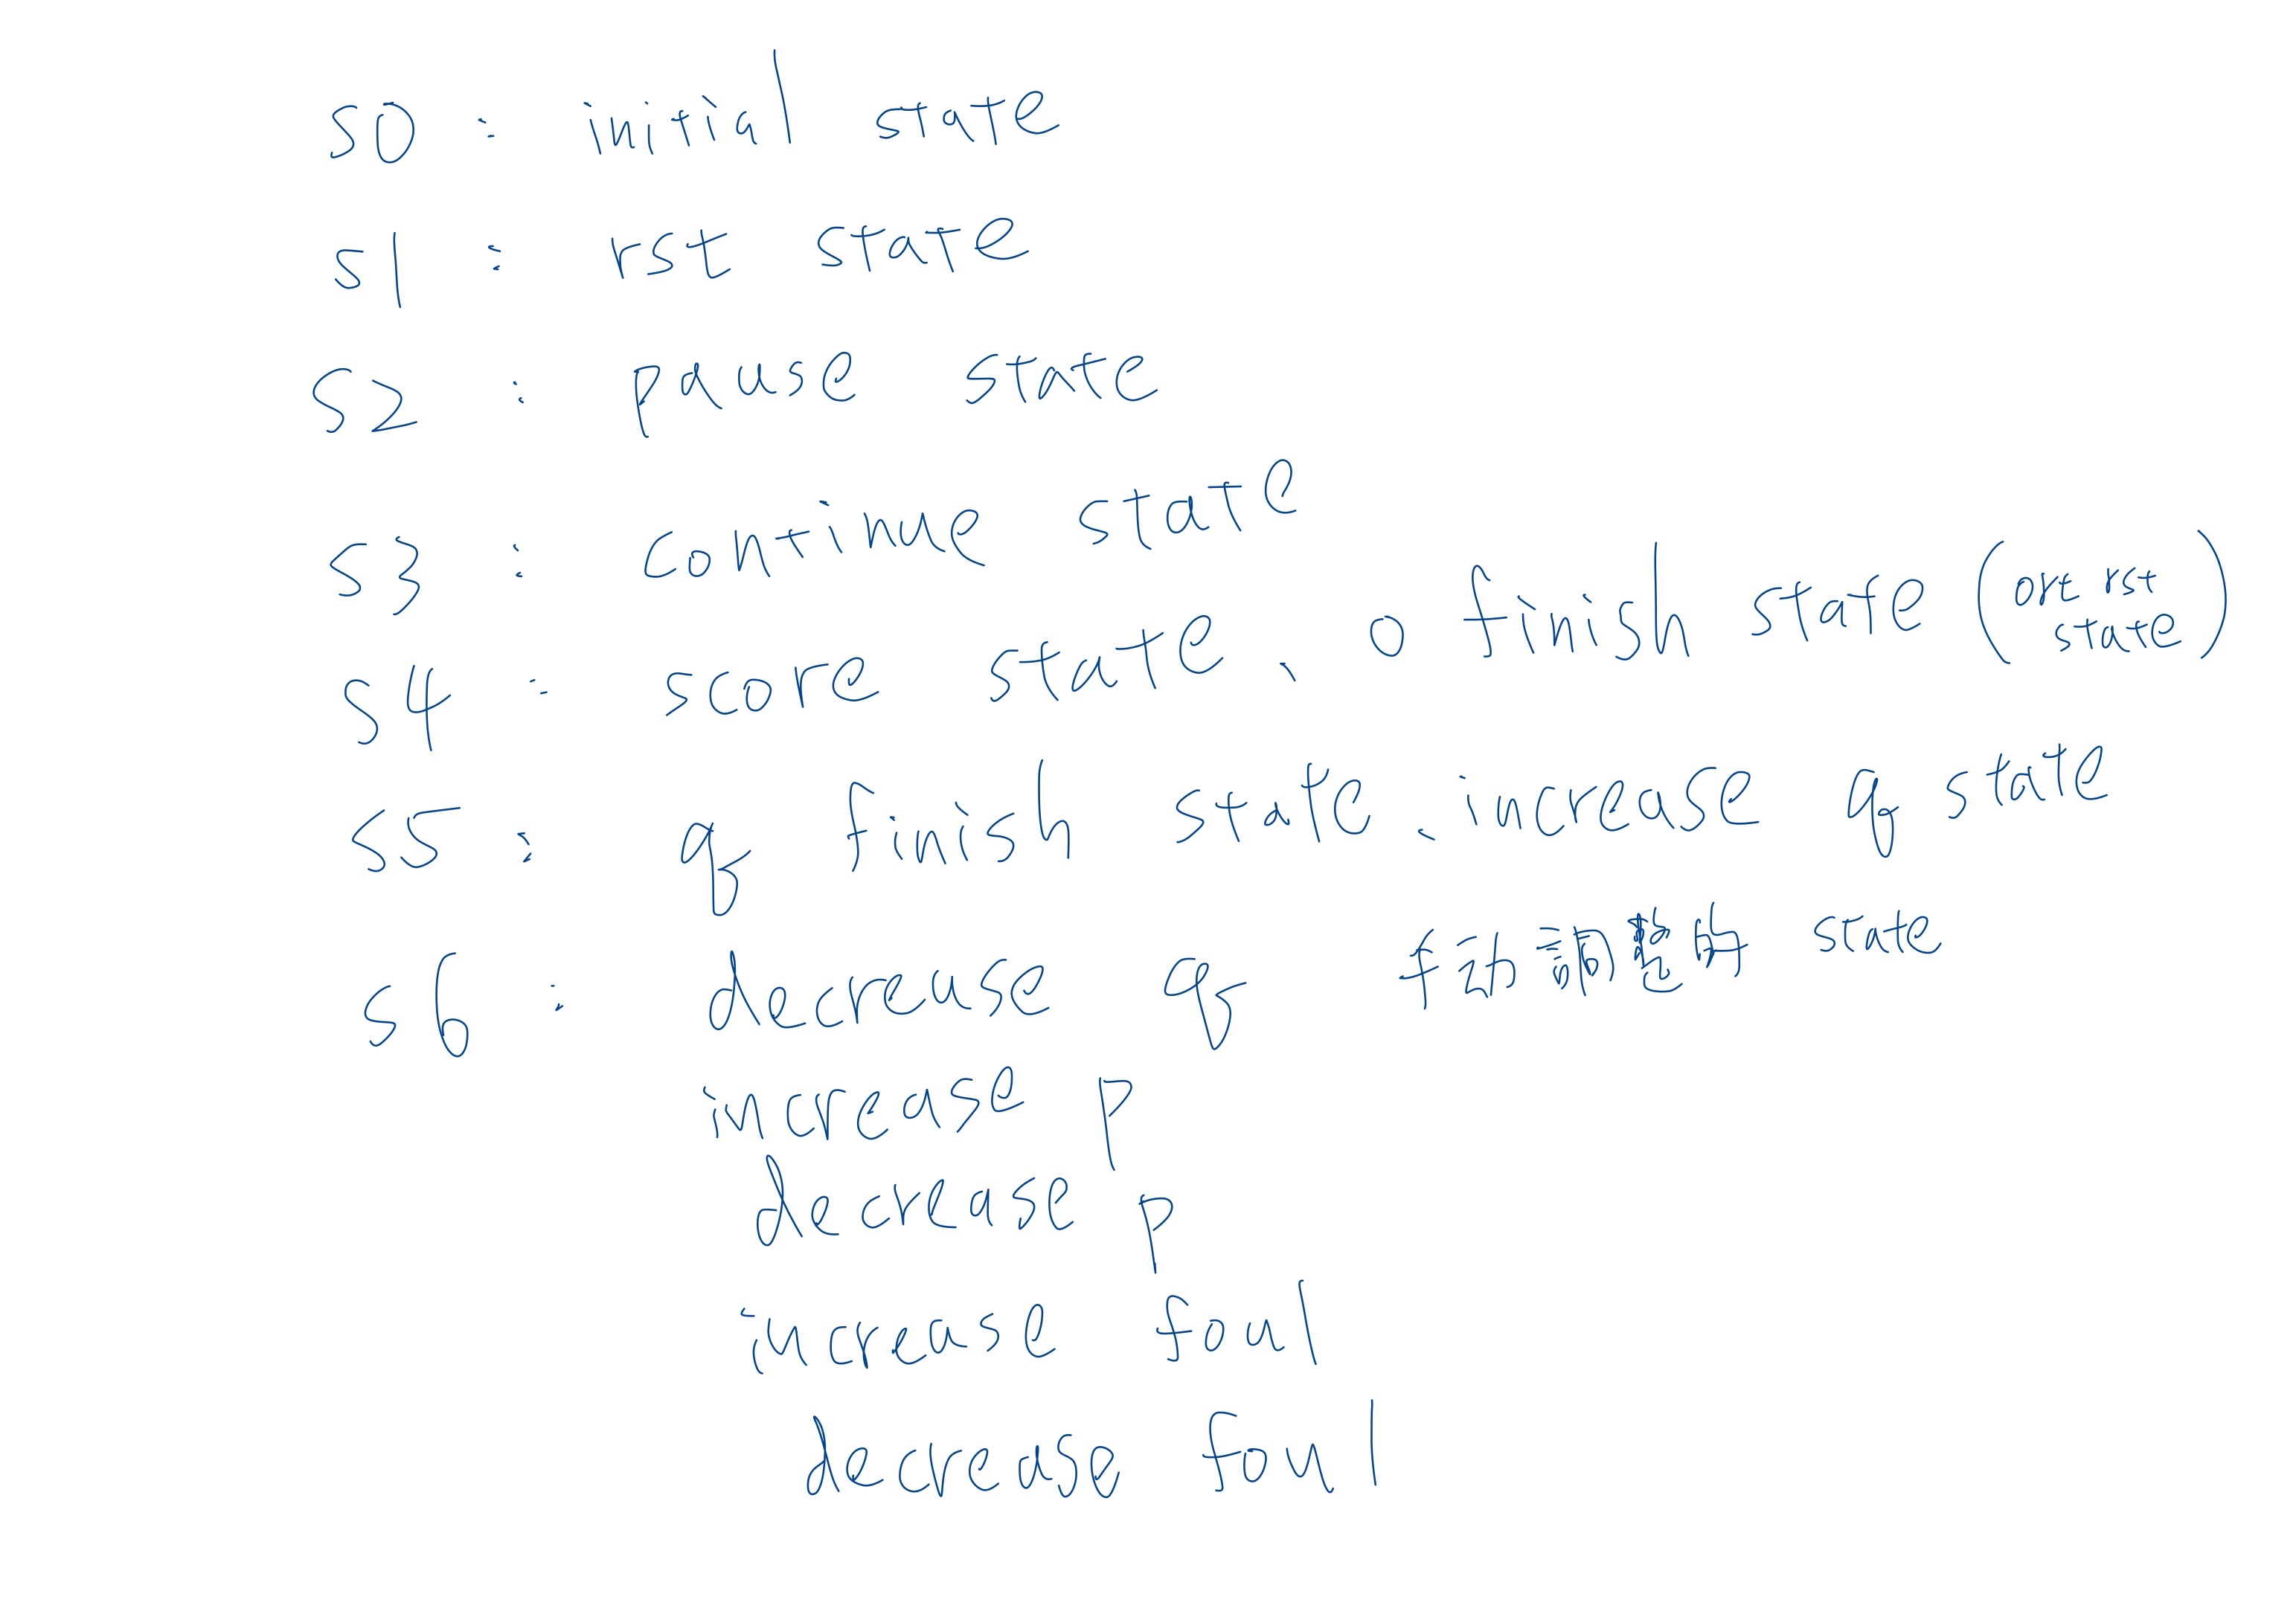 S0 : initial state
S1 : rst state
S2 : pause state
S3 : continue state
S4 : score state、0 finish state (ort rst state)
S5 : q finish state、increase q state
S6 : decrease q 手动調整的 state
increase p
decrease p
increase foul
decrease foul